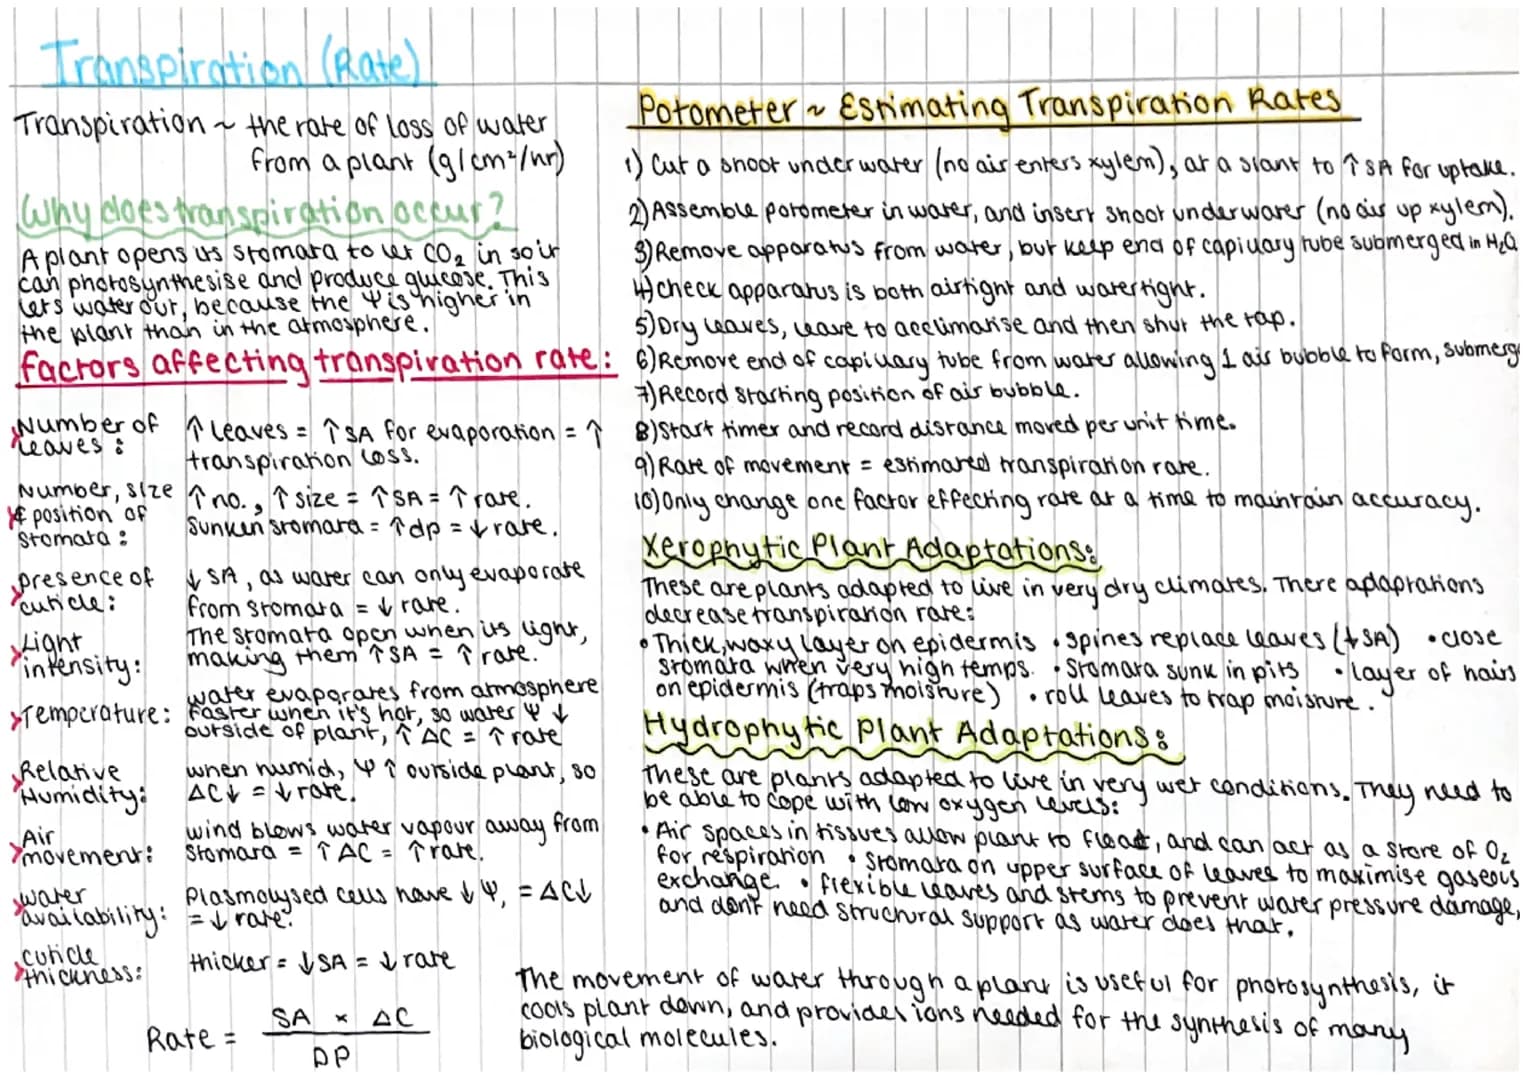 Transpiration (Rate)
Transpiration ~ the rate of loss of water
from a plant (g/cm²/hr)
Why does transpiration occur?
A plant opens its stomata to let CO₂ in so it
can photosynthesise and produce glucose. This
lets water out, because the Ψ is higher in
the plant than in the atmosphere.
factors affecting transpiration rate:
Number of
leaves:
↑ leaves = ↑ SA for evaporation = ↑
transpiration loss.
Number, size
& position of
stomata:
↑ no., ↑ size = ↑ SA = ↑ rate.
Sunken stomata = ↑ dp = ↓ rate.
presence of
cuticle:
↓ SA, as water can only evaporate
from stomata = ↓ rate.
Light
intensity:
The stomata open when its light,
making them ↑ SA = ↑ rate.
Temperature:
water evaporates from atmosphere
faster when it's hot, so water Ψ ↓
outside of plant, ↑ ΔC = ↑ rate
Relative
Humidity:
when humid, Ψ ↑ outside plant, so
ΔC↓ = ↓ rate.
Air
movement:
wind blows water vapour away from
stomata = ↑ ΔC = ↑ rate.
water
availability:
Plasmolysed cells have ↓ Ψ, = ΔC↓
= ↓ rate.
cuticle
thickness:
thicker = ↓ SA = ↓ rate
Rate = SA × ΔC
DP
Potometer ~ Estimating Transpiration Rates
1) Cut a shoot underwater (no air enters xylem), at a slant to ↑ SA for uptake.
2) Assemble potometer in water, and insert shoot underwater (no air up xylem).
3) Remove apparatus from water, but keep end of capillary tube submerged in H₂O
4) check apparatus is both airtight and watertight.
5) Dry leaves, leave to acclimatise and then shut the tap.
6) Remove end of capillary tube from water allowing 1 air bubble to form, submerge
7) Record starting position of air bubble.
8) Start timer and record distance moved per unit time.
9) Rate of movement = estimated transpiration rate.
10) Only change one factor effecting rate at a time to maintain accuracy.
Xerophytic Plant Adaptations:
These are plants adapted to live in very dry climates. There adaptations
decrease transpiration rate:
• Thick, waxy layer on epidermis • spines replace leaves (↓ SA) • close
stomata when very high temps. • Stomata sunk in pits • layer of hairs
on epidermis (traps moisture) • roll leaves to trap moisture.
Hydrophytic Plant Adaptations:
These are plants adapted to live in very wet conditions. They need to
be able to cope with low oxygen levels:
• Air spaces in tissues allow plant to float, and can act as a store of O₂
for respiration • stomata on upper surface of leaves to maximise gaseous
exchange. • flexible leaves and stems to prevent water pressure damage,
and don't need structural support as water does that.
The movement of water through a plant is useful for photosynthesis, it
cools plant down, and provides ions needed for the synthesis of many
biological molecules.